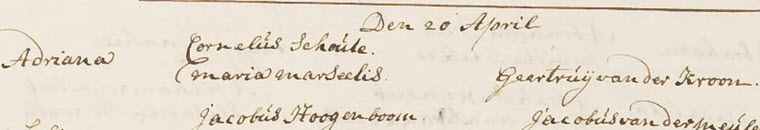 Den 20 April
Cornelús Schoúte.
Adriana
maria marseelis. Geertruij van der Kroon.
Jacobús Hoogenboom Jacobús van der